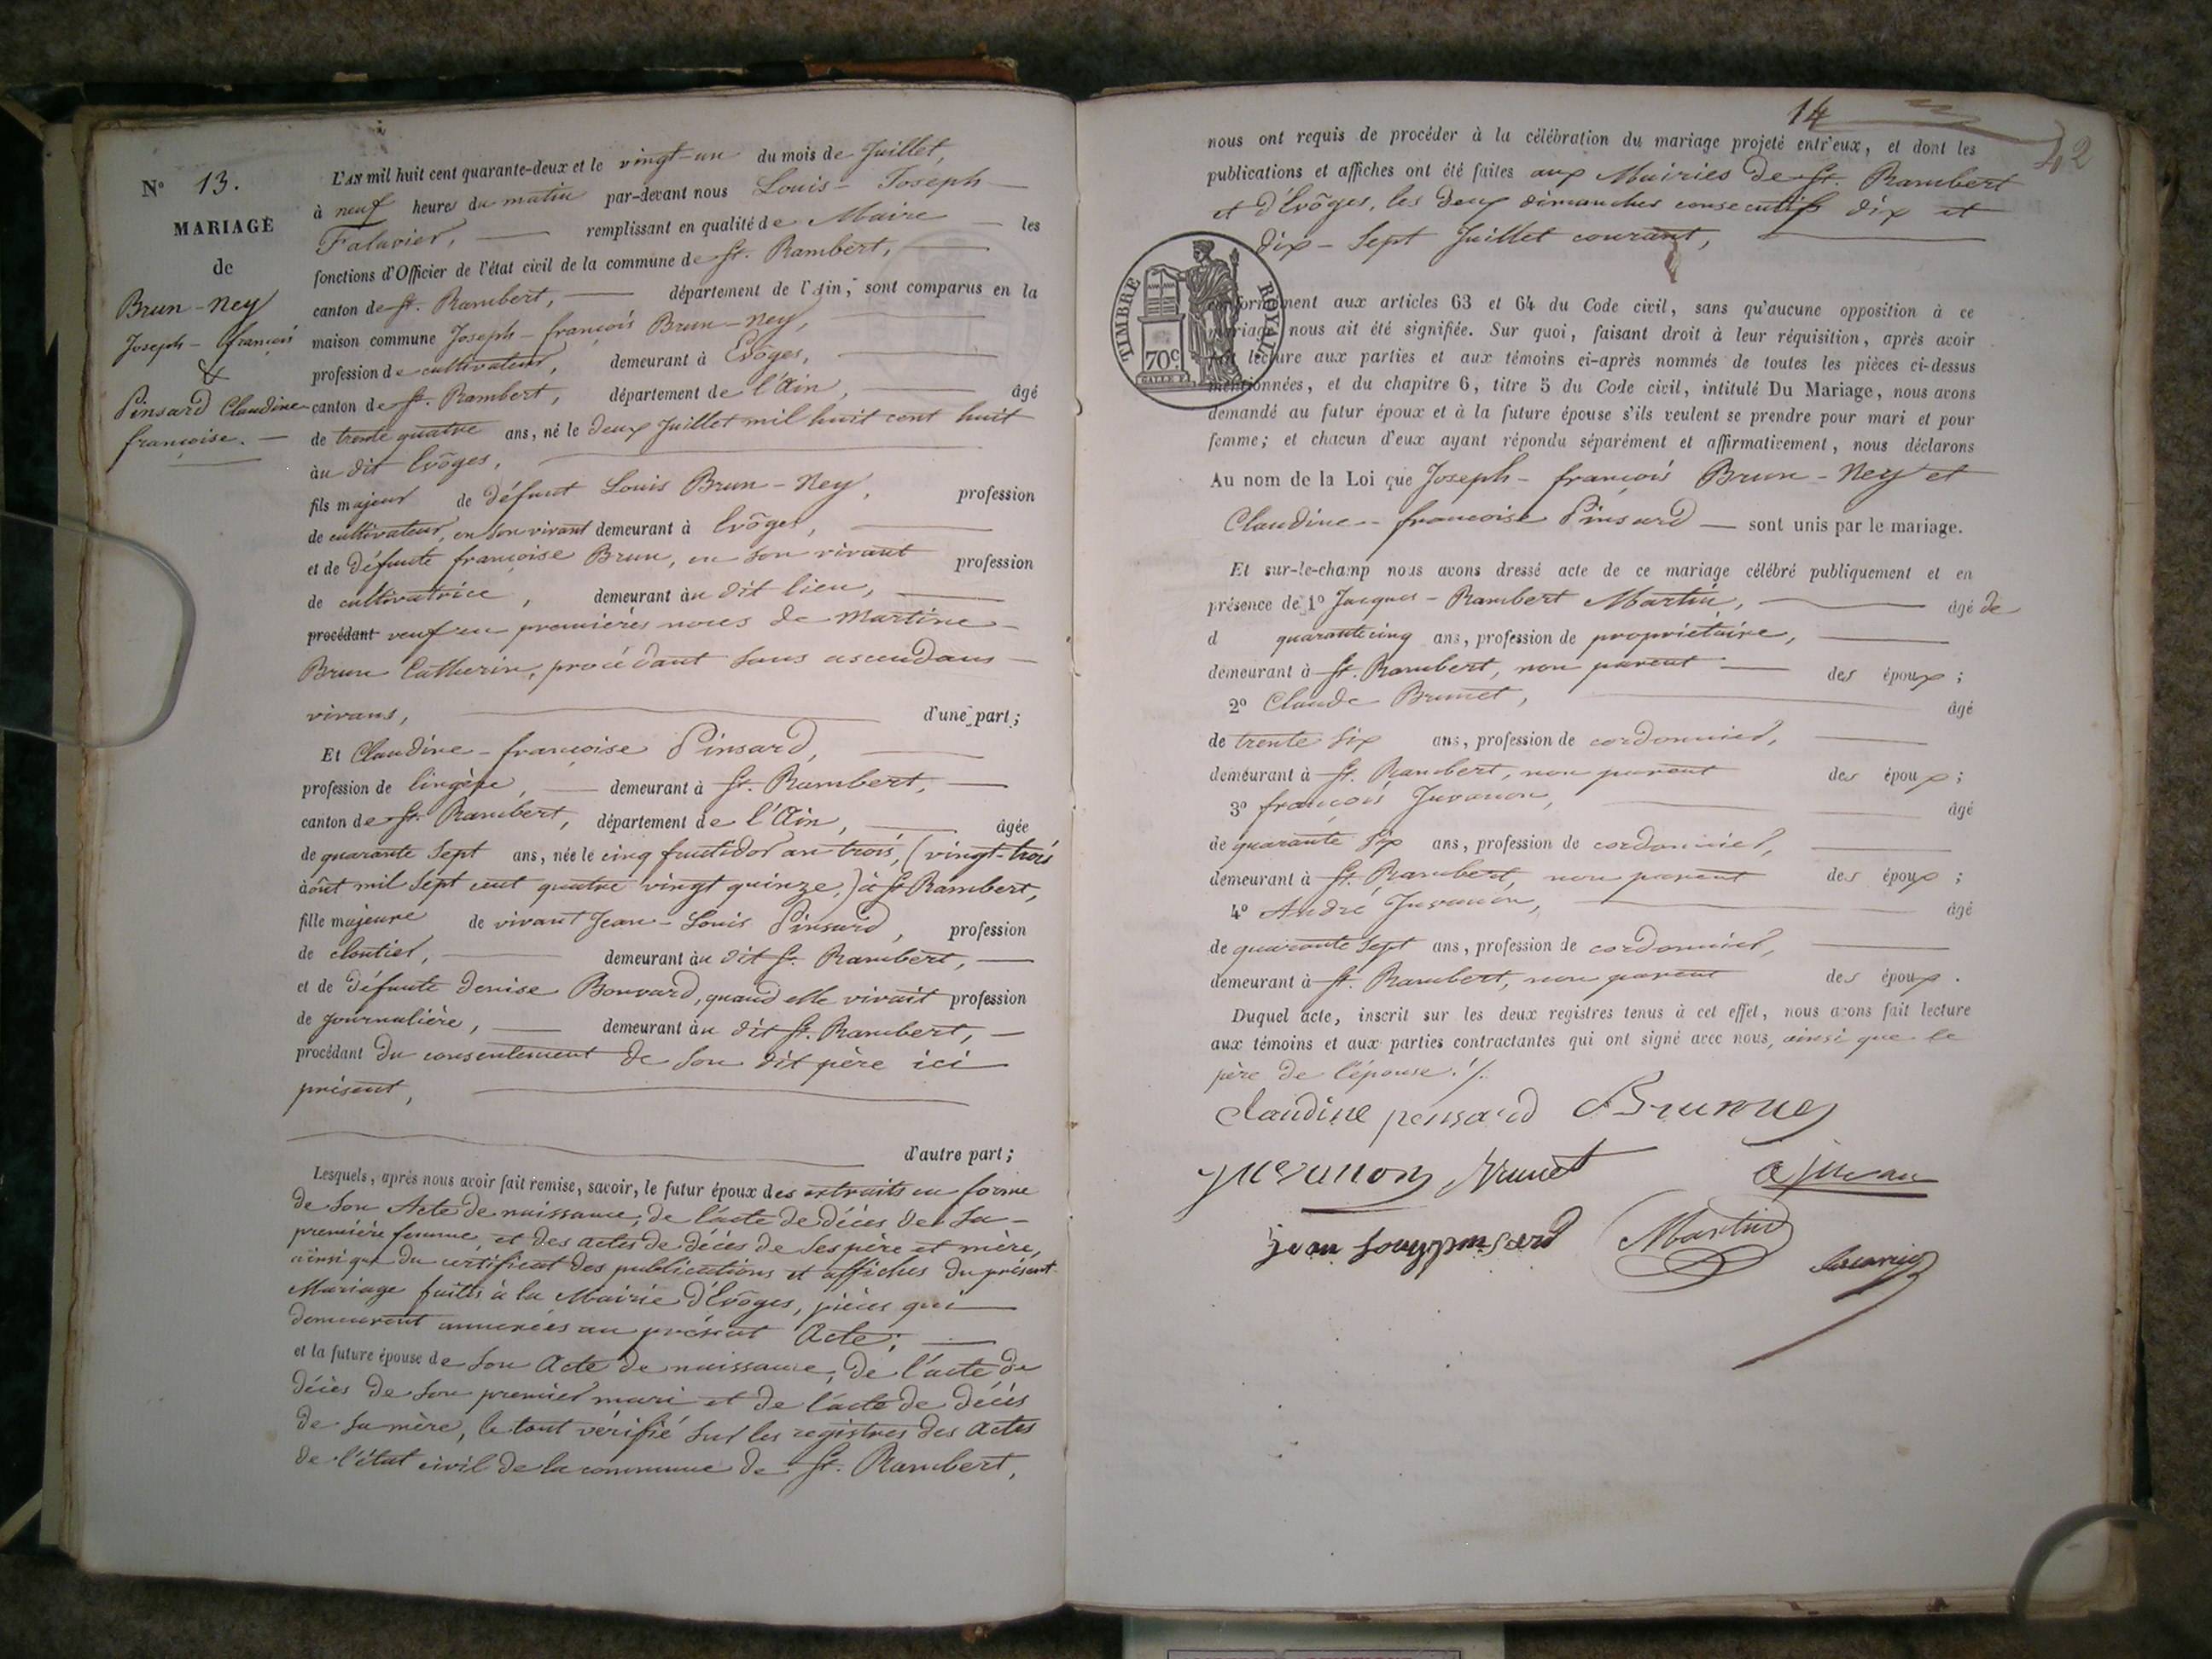 N° 13.
MARIAGE
de
Brun-Ney
Joseph-françois
&
Pinsard Claudine
françoise.
L'AN mil huit cent quarante-deux et le vingt-un du mois de Juillet,
à neuf heures du matin par-devant nous Louis-Joseph
Falavier, remplissant en qualité de Maire les
fonctions d'Officier de l'état civil de la commune de St. Rambert,
canton de St. Rambert, département de l'Ain, sont comparus en la
maison commune Joseph-françois Brun-Ney,
profession de cultivateur, demeurant à Evôges,
canton de St. Rambert, département de l'Ain, âgé
de trente quatre ans, né le deux Juillet mil huit cent huit
au dit Evôges,
fils majeur de défunt Louis Brun-Ney, profession
de cultivateur, en son vivant demeurant à Evôges,
et de défunte françoise Brun, en son vivant profession
de cultivatrice, demeurant àu dit lieu,
procédant veuf en premières noces de Martine
Brun Catherin, procédant sans ascendans
vivans, d'une part;
Et Claudine-françoise Pinsard,
profession de lingère, demeurant à St. Rambert,
canton de St. Rambert, département de l'Ain, âgée
de quarante sept ans, née le cinq fructidor an trois, (vingt-trois
août mil sept cent quatre vingt quinze,) à St Rambert,
fille majeure de vivant Jean-Louis Pinsard, profession
de cloutier, demeurant àu dit St. Rambert,
et de défunte denise Bonvard, quand elle vivait profession
de journalière, demeurant àu dit St. Rambert,
procédant du consentement de son dit père ici
présent,
d'autre part;
Lesquels, après nous avoir fait remise, savoir, le futur époux des extraits en forme
de son Acte de naissance, de l'acte de décès de sa
première femme, et des actes de décès de ses père et mère,
ainsi que du certificat des publications et affiches du présent
Mariage faites à la Mairie d'Evôges, pièces qui
demeureront annexées au présent Acte;
et la future épouse de son Acte de naissance, de l'acte de
décès de son premier mari et de l'acte de décès
de sa mère, le tout vérifié sur les registres des actes
de l'état civil de la commune de St. Rambert,
14
42
nous ont requis de procéder à la célébration du mariage projeté entr'eux, et dont les
publications et affiches ont été faites aux Mairies de St. Rambert
et d'Evôges, les deux dimanches consecutifs dix et
dix-sept Juillet courant,
TIMBRE ROYAL
70c
conformément aux articles 63 et 64 du Code civil, sans qu'aucune opposition à ce
mariage nous ait été signifiée. Sur quoi, faisant droit à leur réquisition, après avoir
fait lecture aux parties et aux témoins ci-après nommés de toutes les pièces ci-dessus
mentionnées, et du chapitre 6, titre 5 du Code civil, intitulé Du Mariage, nous avons
demandé au futur époux et à la future épouse s'ils veulent se prendre pour mari et pour
femme; et chacun d'eux ayant répondu séparément et affirmativement, nous déclarons
Au nom de la Loi que Joseph-françois Brun-Ney et
Claudine-françoise Pinsard sont unis par le mariage.
Et sur-le-champ nous avons dressé acte de ce mariage célébré publiquement et en
présence de 1° Jacques-Rambert Martin, âgé de
d quarante cinq ans, profession de propriétaire,
demeurant à St. Rambert, non parent des époux;
2° Claude Brunet, âgé
de trente six ans, profession de cordonnier,
demeurant à St. Rambert, non parent des époux;
3° françois Juvanon, âgé
de quarante six ans, profession de cordonnier,
demeurant à St. Rambert, non parent des époux;
4° André Juvanon, âgé
de quarante sept ans, profession de cordonnier,
demeurant à St. Rambert, non parent des époux.
Duquel acte, inscrit sur les deux registres tenus à cet effet, nous avons fait lecture
aux témoins et aux parties contractantes qui ont signé avec nous, ainsi que le
père de l'épouse.
Claudine pensard Brunney
Juvanon Brunet
Martin